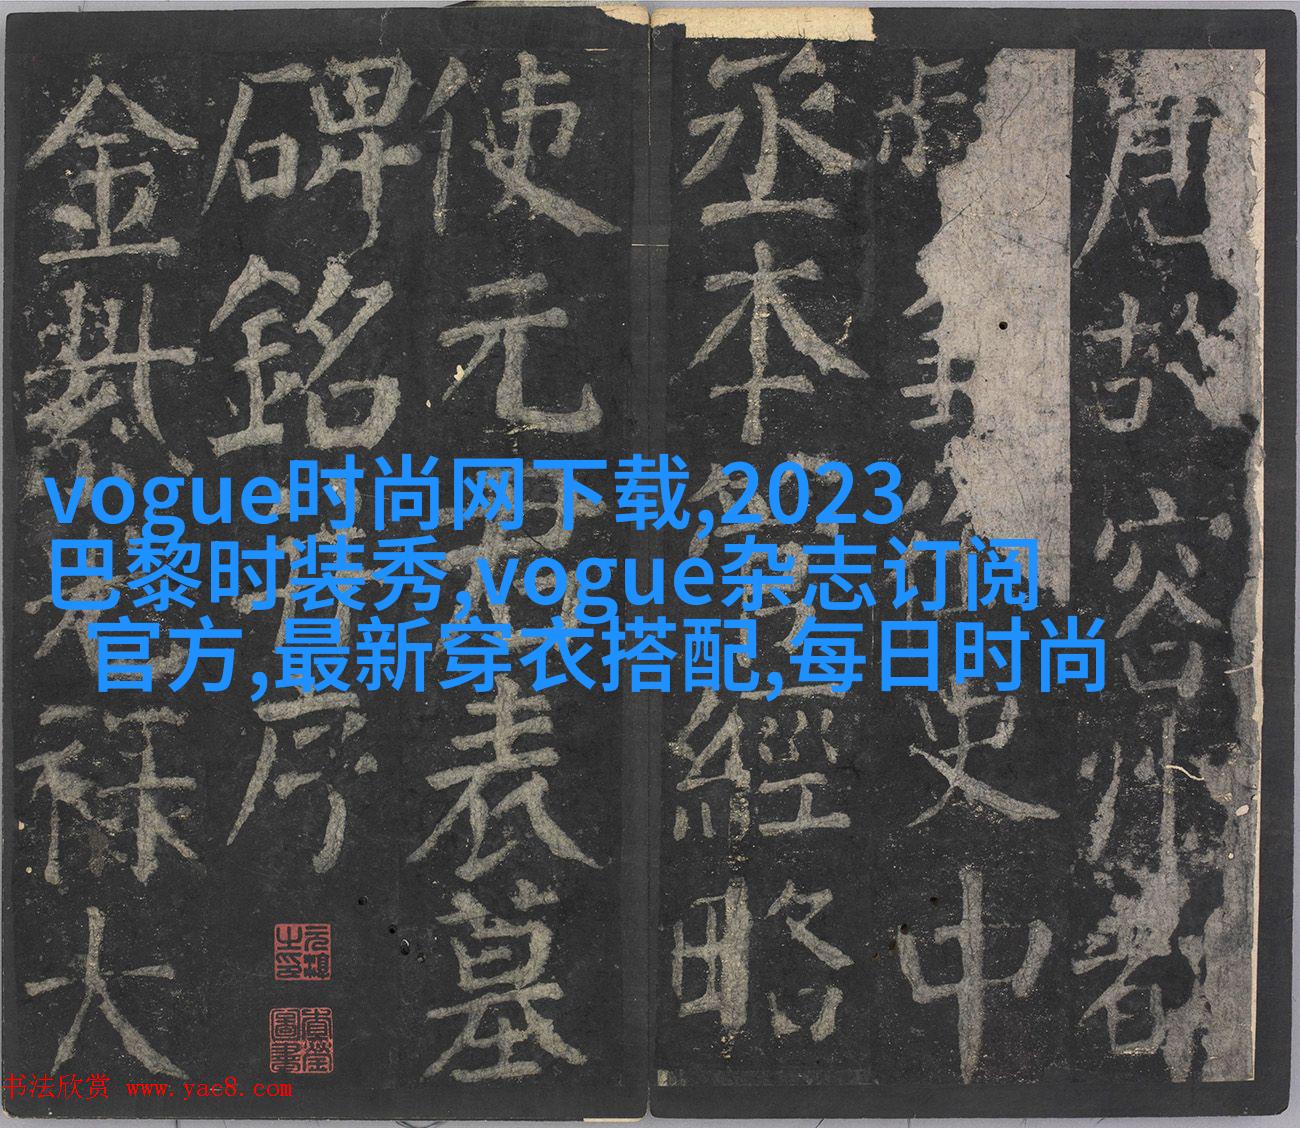 唐故容州都
史中
丞本管經略
使元君表墓
碑銘并序
金紫光祿大
vogue时尚网下载,2023
巴黎时装秀,vogue杂志订阅
官方,最新穿衣搭配,每日时尚
书法欣赏 www.yac8.com